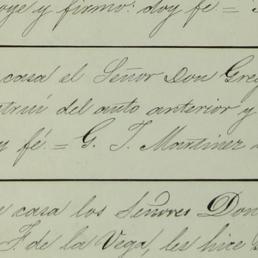 oye y firmo: doy fe =
casa el Señor Don Greg
strui del auto anterior y
y fé = G. T. Martinez
e casa los Señores Don
F. de la Vega, les hice